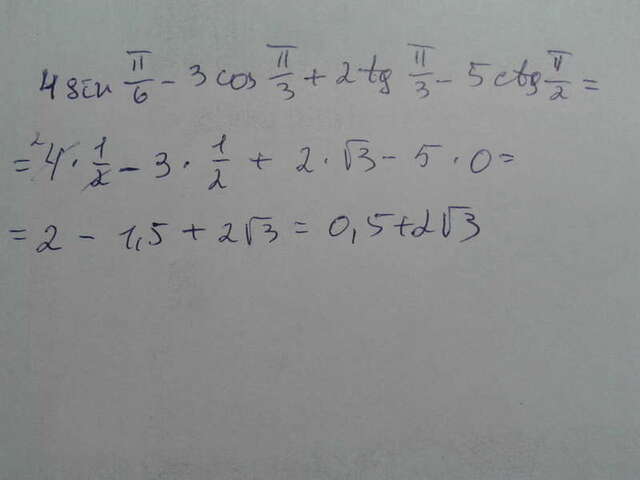 4 sin π/6 - 3 cos π/3 + 2 tg π/3 - 5 ctg π/2 =
= 4² · 1/2 - 3 · 1/2 + 2 · √3 - 5 · 0 =
= 2 - 1,5 + 2√3 = 0,5 + 2√3